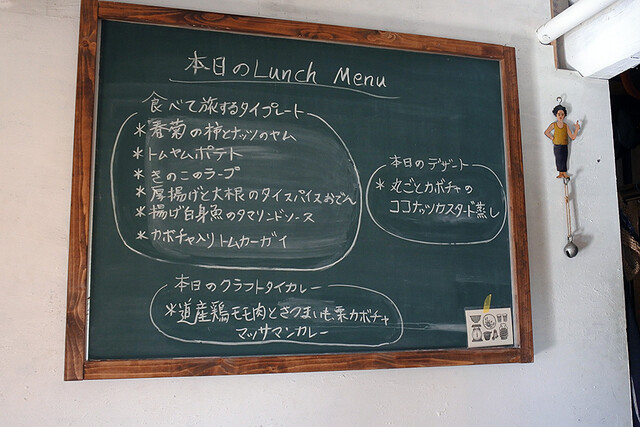 本日のLunch Menu
食べて旅するタイプレート
*春菊の柿とナッツのヤム
*トムヤムポテト
*きのこのラープ
*厚揚げと大根のタイスパイスおでん
*揚げ白身魚のタマリンドソース
*カボチャ入りトムカーガイ
本日のデザート
*丸ごとカボチャの
ココナッツカスタード蒸し
本日のクラフトタイカレー
*道産鶏モモ肉とさつまいも、栗カボチャ
マッサマンカレー